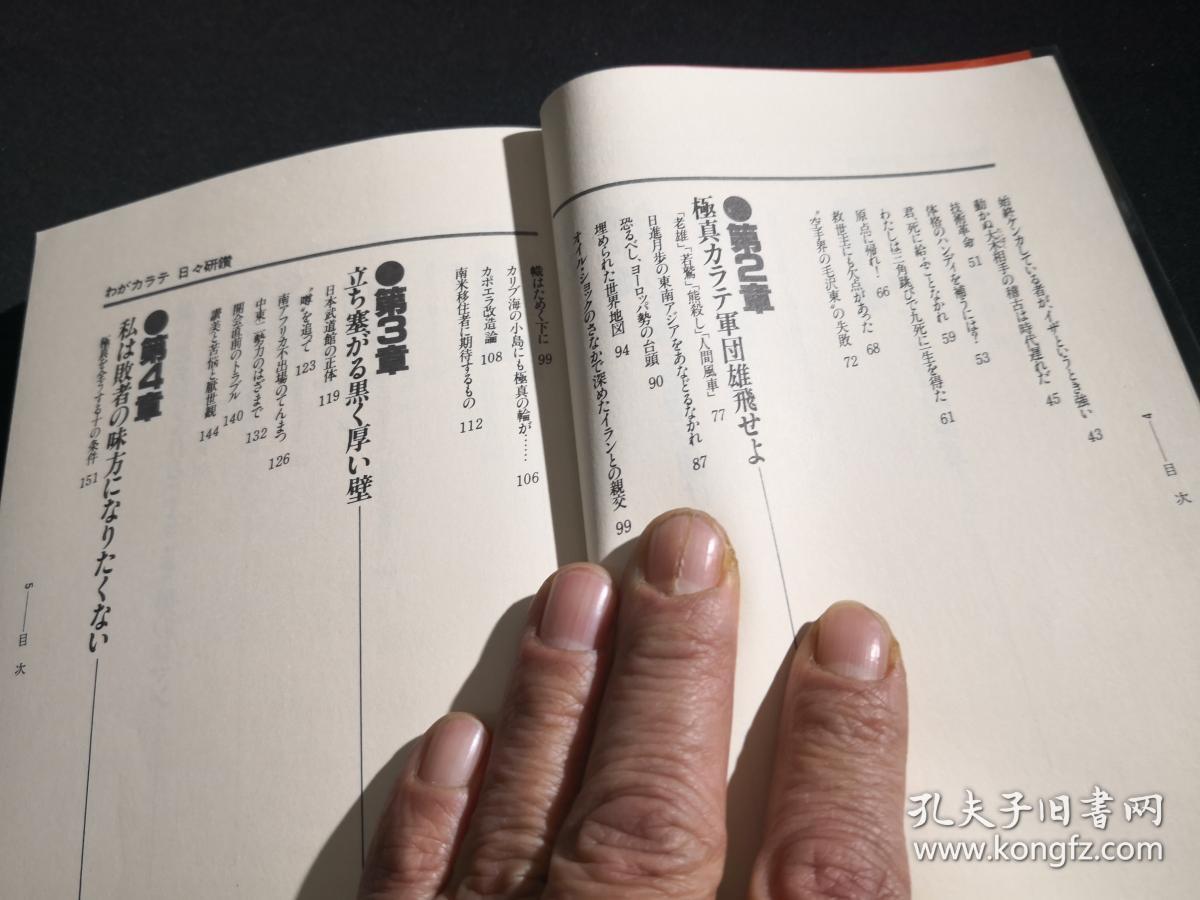 4——目次
始終ケンカしている者が、イザというとき強い 43
動かぬ大木相手の稽古は時代遅れだ 45
技術革命 51
体格のハンディを補うには? 53
君、死に給ふことなかれ 59
わたしは三角跳びで九死に一生を得た 61
原点に帰れ! 66
救世主にも欠点があった 68
“空手界の毛沢東”の失敗 72
●第2章
極真カラテ軍団雄飛せよ
「老雄」「若鷲」「熊殺し」「人間風車」 77
日進月歩の東南アジアをあなどるなかれ 87
恐るべし、ヨーロッパ勢の台頭 90
埋められた世界地図 94
オイル・ショックのさなかで深めたイランとの親交 99
わがカラテ 日々研鑽
幟はためく下に 99
カリブ海の小島にも極真の輪が…… 106
カポエラ改造論 108
南米移住者に期待するもの 112
●第3章
立ち塞がる黒く厚い壁
日本武道館の正体 119
“噂”を追って 123
南アフリカ不出場のてんまつ 126
中東二勢力のはざまで 132
開会直前のトラブル 140
讃美と苦悩と厭世観 144
●第4章
私は敗者の味方になりたくない
極真を全うする十の条件 151
5——目次
孔夫子旧書网
www.kongfz.com